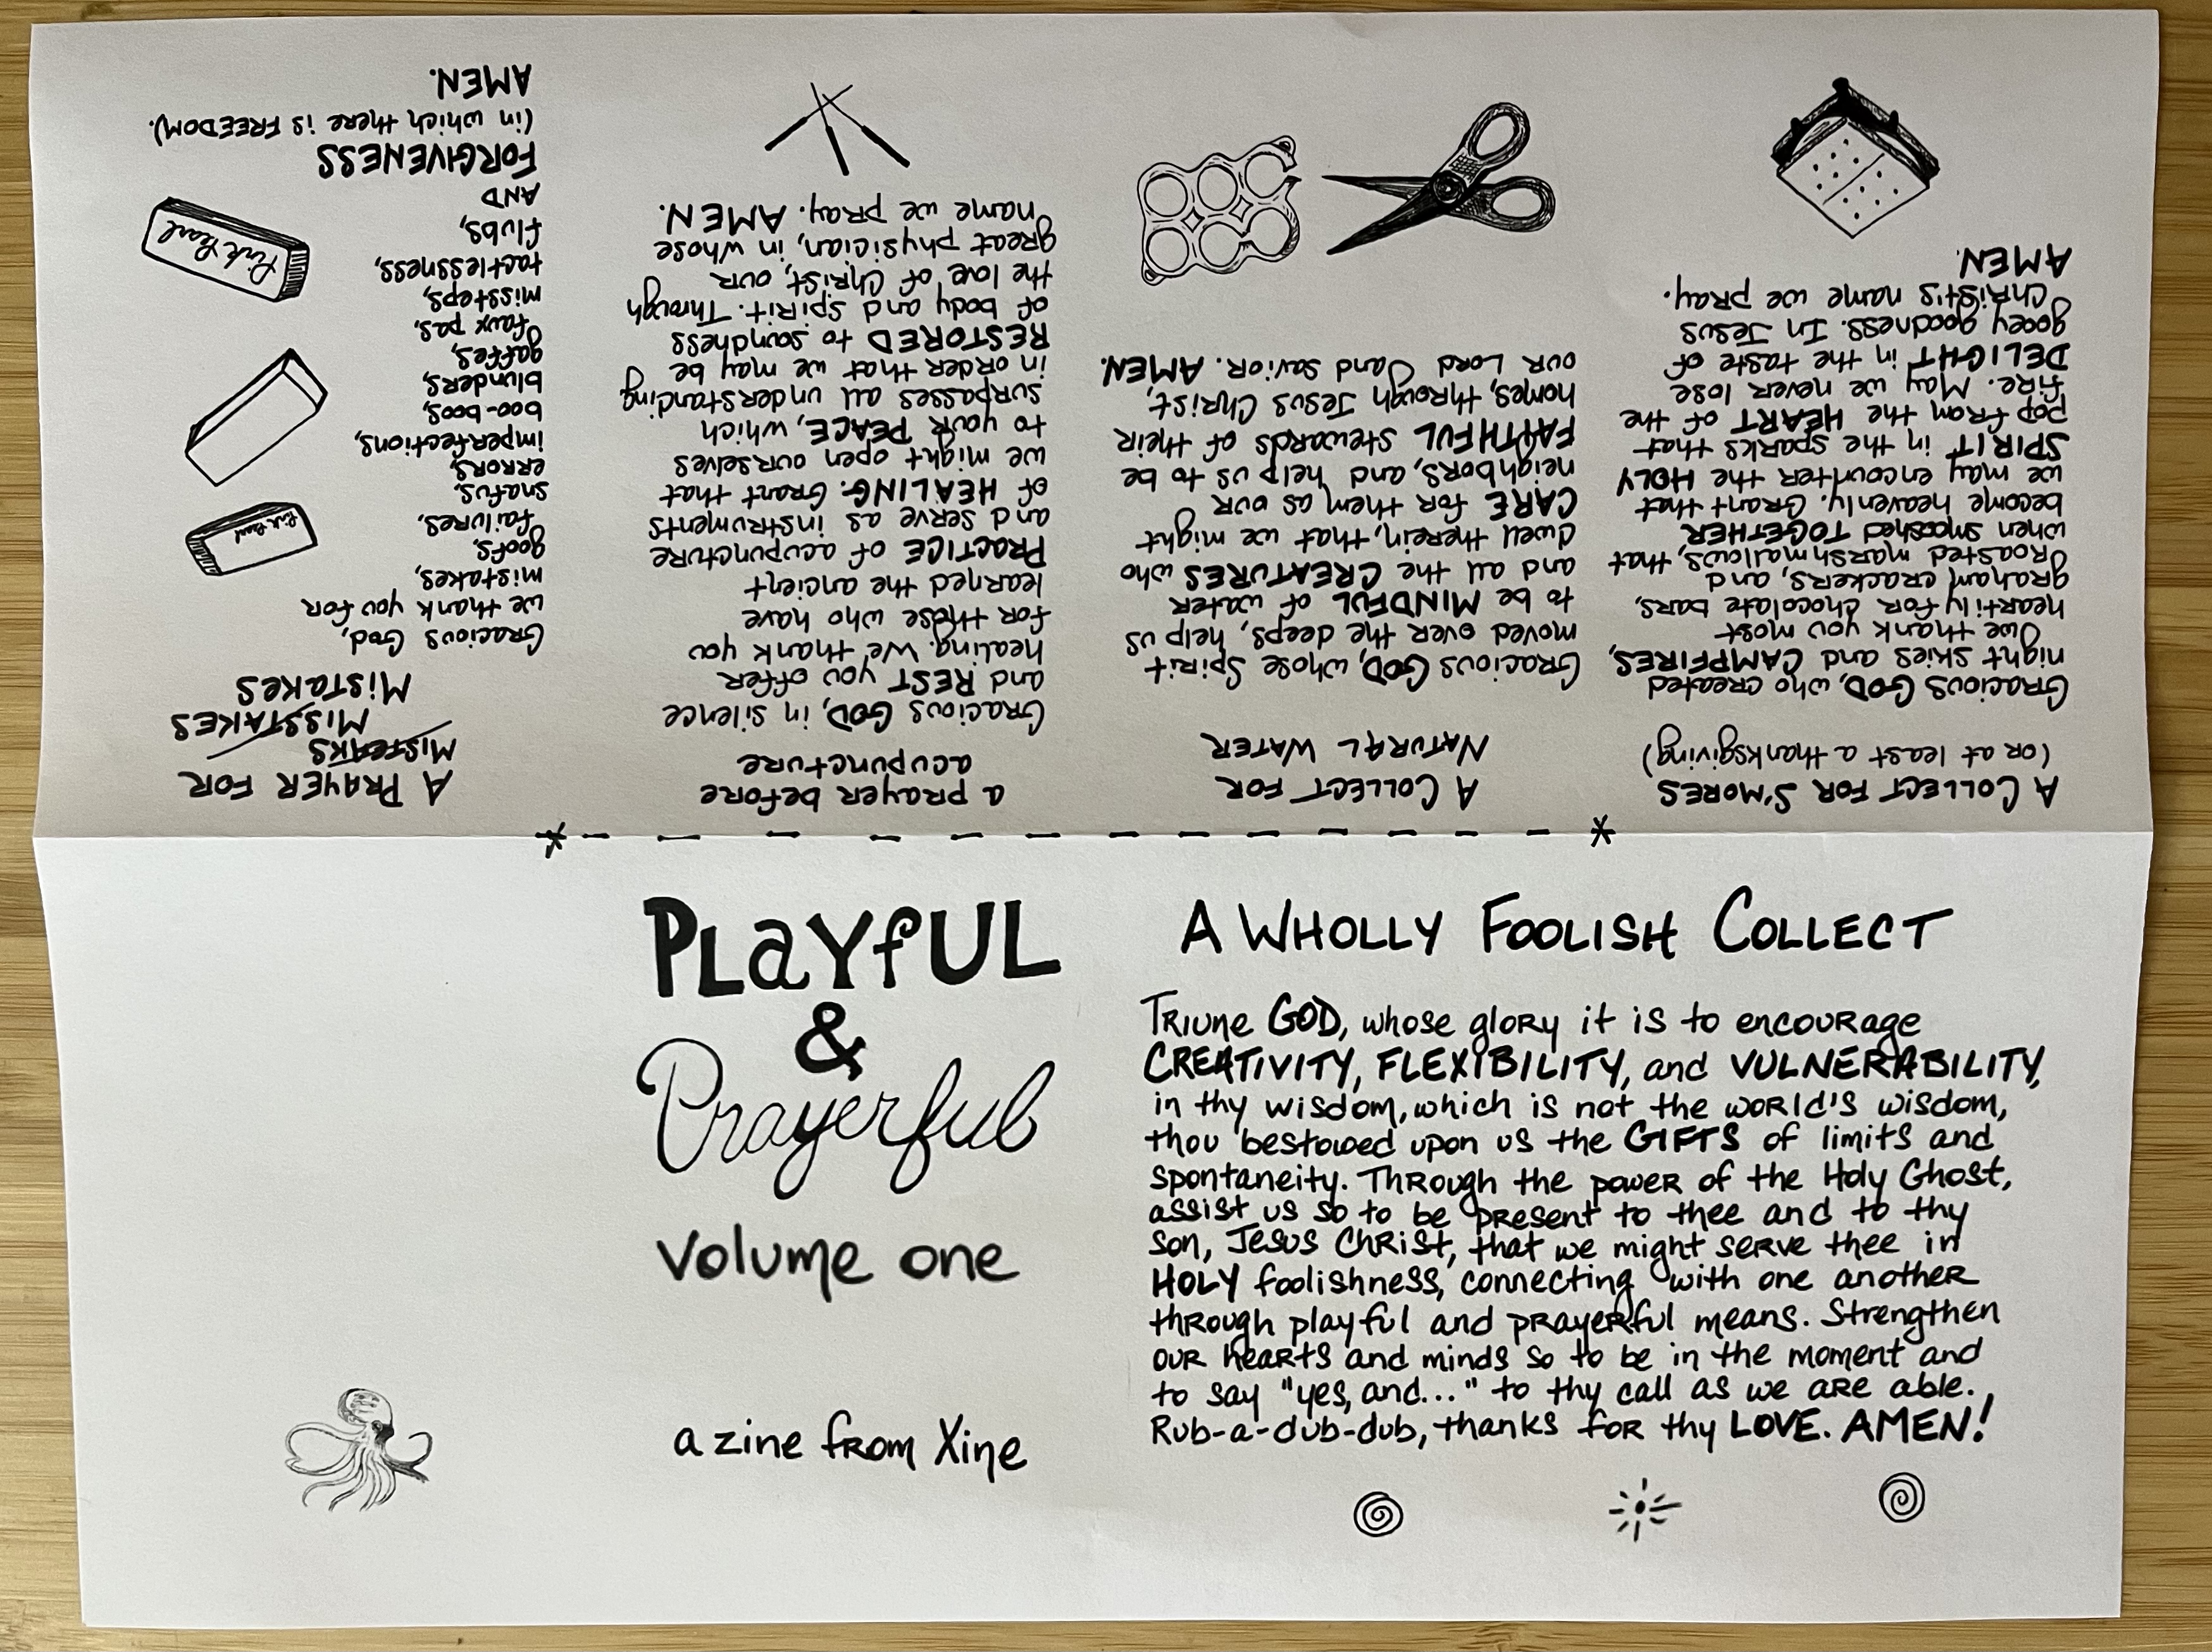 PLaYfUL
&
Prayerful
volume one
a zine from Xine
A WHOLLY FOOLISH COLLECT
Triune GOD, whose glory it is to encourage
CREATIVITY, FLEXIBILITY, and VULNERABILITY,
in thy wisdom, which is not the world's wisdom,
thou bestowed upon us the GIFTS of limits and
spontaneity. Through the power of the Holy Ghost,
assist us so to be present to thee and to thy
son, Jesus Christ, that we might serve thee in
HOLY foolishness, connecting with one another
through playful and prayerful means. Strengthen
our hearts and minds so to be in the moment and
to say "yes, and..." to thy call as we are able.
Rub-a-dub-dub, thanks for thy LOVE. AMEN!
A COLLECT FOR S'MORES
(or at least a thanksgiving)
Gracious GOD, who created
night skies and CAMPFIRES,
we thank you most
heartily for chocolate bars,
graham crackers, and
roasted marshmallows, that
when smooshed TOGETHER
become heavenly. Grant that
we may encounter the HOLY
SPIRIT in the sparks that
pop from the HEART of the
fire. May we never lose
DELIGHT in the taste of
gooey goodness. In Jesus
Christ's name we pray.
AMEN.
A COLLECT FOR
NATURAL WATER
Gracious GOD, whose Spirit
moved over the deeps, help us
to be MINDFUL of water
and all the CREATURES who
dwell therein, that we might
CARE for them as our
neighbors, and help us to be
FAITHFUL stewards of their
homes, through Jesus Christ,
our Lord and savior. AMEN.
a prayer before
acupuncture
Gracious GOD, in silence
and REST you offer
healing. We thank you
for those who have
learned the ancient
PRACTICE of acupuncture
and serve as instruments
of HEALING. Grant that
we might open ourselves
to your PEACE, which
surpasses all understanding
in order that we may be
RESTORED to soundness
of body and spirit. Through
the love of Christ, our
great physician, in whose
name we pray. AMEN.
A PRAYER FOR
MISTEAKS
MISSTAKES
MISTAKES
Gracious God,
we thank you for
mistakes,
goofs,
failures,
snafus,
errors,
imperfections,
boo-boos,
blunders,
gaffes,
faux pas,
missteps,
tactlessness,
flubs,
AND
FORGIVENESS
(in which there is FREEDOM).
AMEN.
Pink Pearl
Pink Pearl